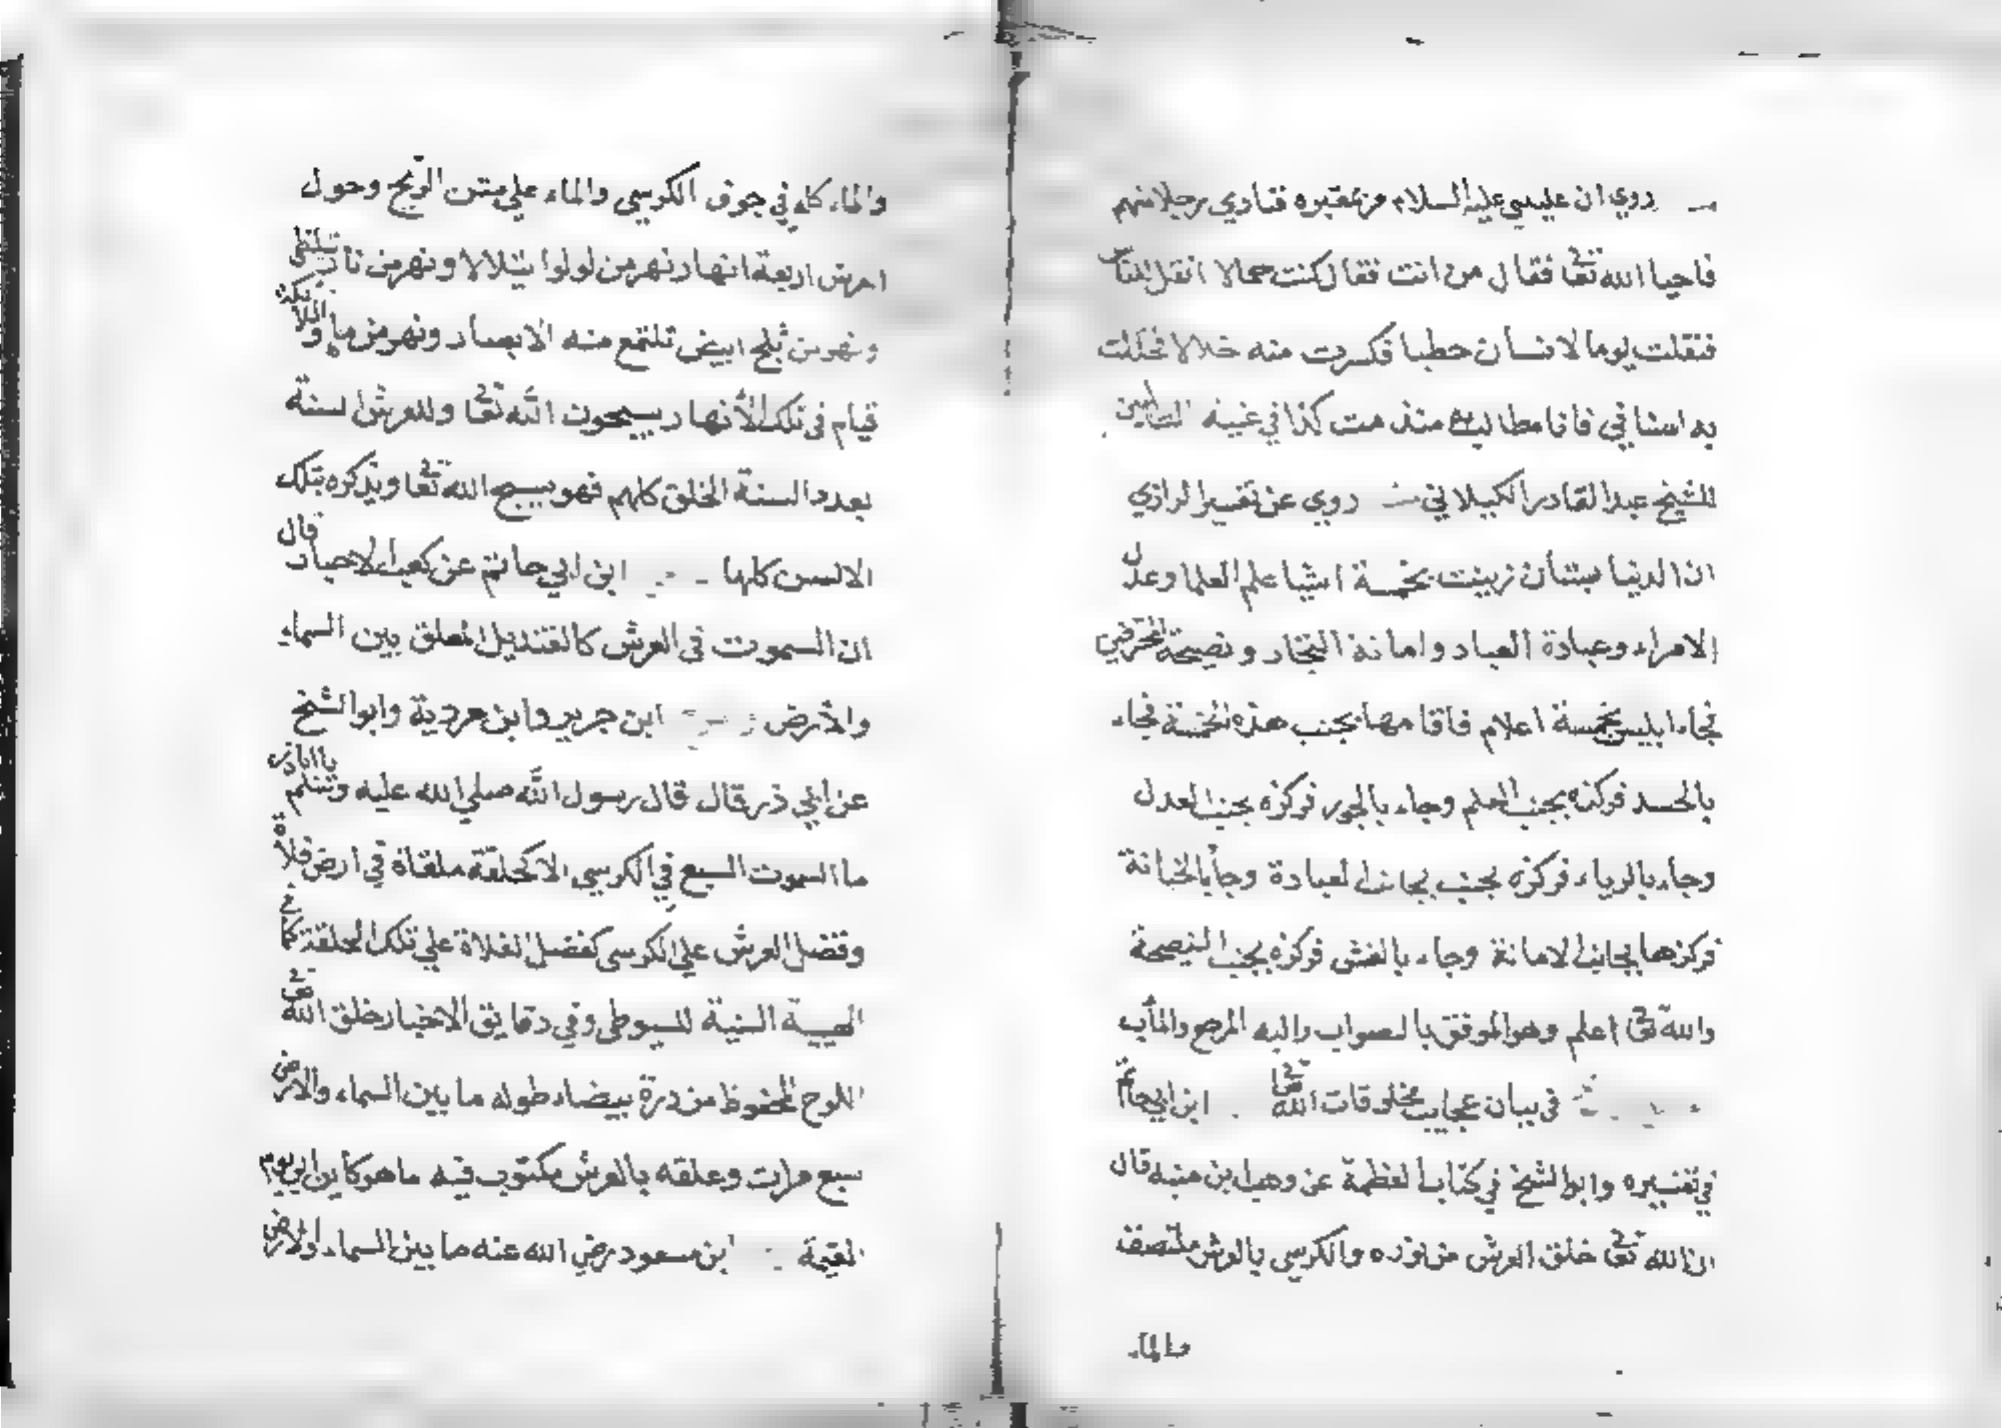 روي ان عليسي عليه السلام مر بمقبره فنادي رجلا منهم
فاحيا الله تعا فقال من انت فقال كنت حمالا انقل للناس
فنقلت يوما لانسان حطبا فكسرت منه خلالا تخللت
به اسناني فانا مطالب منذ مت كذا في غنية الطالبين
للشيخ عبد القادر الكيلاني روي عن تفسير الرازي
ان الدنيا بستان زينت بخمسة اشيا علم العلما وعدل
الامراء وعبادة العباد وامانة التجار ونصيحة المحترفي
فجاء ابليس بخمسة اعلام فاقامها بجنب هذه الخمسة فجاء
بالحسد فركزه بجنب العلم وجاء بالجور فركزه بجنب العدل
وجاء بالرياء فركزه بجنب بجانب العبادة وجأ بالخيانة
فركزها بجانب الامانة وجاء بالغش فركزه بجنب النصيحة
والله تعا اعلم وهو الموفق بالصواب واليه المرجع والمأب
في بيان عجايب مخلوقات الله تعا ابن ابي حاتم
في تفسيره وابو الشيخ في كتاب العظمة عن وهب بن منبه قال
ان الله تعا خلق العرش من نوره والكرسي بالعرش ملتصق
والماء
والماء كله في جوف الكرسي والماء علي متن الريح وحول
العرش اربعة انهار نهر من لولوا يتلالا ونهر من نار تتلظى
ونهر من ثلج ابيض تلتمع منه الابصار ونهر من ماء والملائكة
قيام في تلك الأنهار يسبحون الله تعا وللعرش السنة
بعدد السنة الخلق كلهم فهو يسبح الله تعا ويذكره بتلك
الالسن كلها ابن ابي حاتم عن كعب الاحبار قال
ان السموت في العرش كالقنديل المعلق بين السماء
والأرض ابن جرير وابن مردية وابو الشيخ
عن ابي ذر قال قال رسول الله صلي الله عليه وسلم يا ابا ذر
ما السموت السبع في الكرسي الا كحلقة ملقاة في ارض فلاة
وفضل العرش علي الكرسي كفضل الفلاة علي تلك الحلقة
الهيية السنية للسيوطي وفي دقايق الاخبار خلق الله تعا
اللوح المحفوظ من درة بيضاء طوله ما بين السماء والارض
سبع مرات وعلقه بالعرش مكتوب فيه ما هو كاين الي يوم
القيمة ابن مسعود رضي الله عنه ما بين السماء والارض